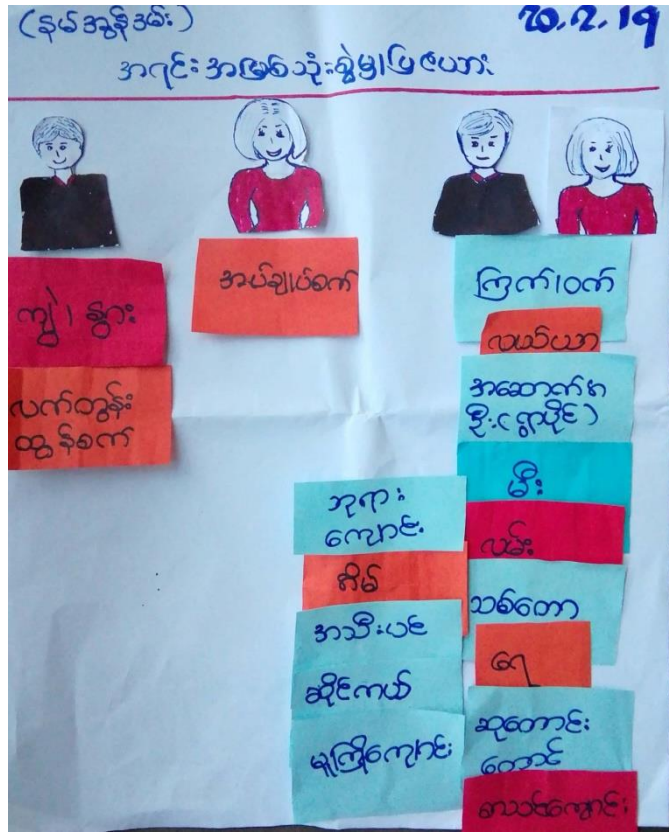 (နမ်အွန်ဒမ်း)
20.2.19
အရင်းအမြစ်သုံးစွဲမှုပြဇယား
ကျွဲ၊ နွား
လက်တွန်း
ထွန်စက်
အပ်ချုပ်စက်
ကြက်၊ဝက်
လယ်ယာ
အဆောက်အ
ဦး(ရွာပိုင်)
မီး
လမ်း
သစ်တော
ရေ
ဆုတောင်း
တောင်
စာသင်ကျောင်း
ဘုရား
ကျောင်း
အိမ်
အသီးပင်
ဆိုင်ကယ်
မူကြိုကျောင်း